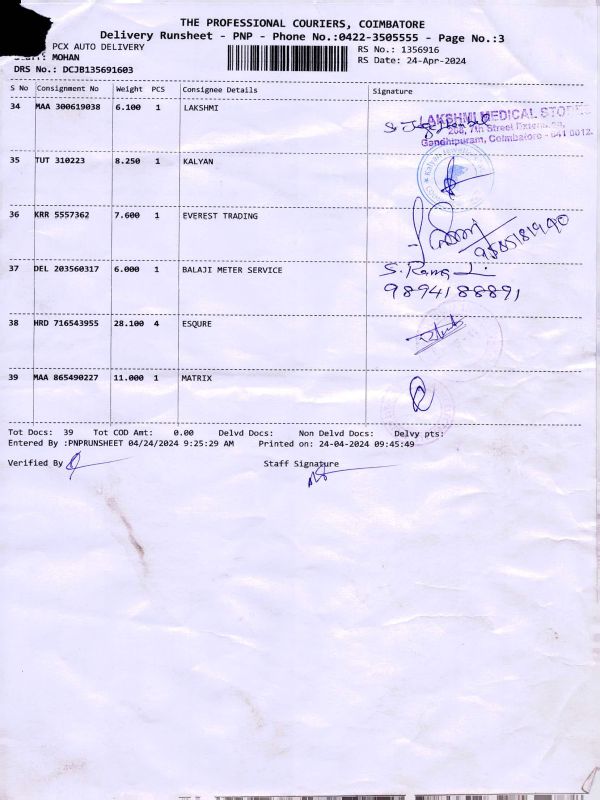 THE PROFESSIONAL COURIERS, COIMBATORE
Delivery Runsheet - PNP - Phone No.:0422-3505555 - Page No.:3
PCX AUTO DELIVERY
RS No.: 1356916
MOHAN
RS Date: 24-Apr-2024
DRS No.: DCJB135691603
S No Consignment No Weight PCS Consignee Details Signature
34 MAA 300619038 6.100 1 LAKSHMI
LAKSHMI MEDICAL STORES
208, 7th Street Extension,
Gandhipuram, Coimbatore - 641 0012.
35 TUT 310223 8.250 1 KALYAN
36 KRR 5557362 7.600 1 EVEREST TRADING
37 DEL 203560317 6.000 1 BALAJI METER SERVICE
9894188891
38 HRD 716543955 28.100 4 ESQURE
39 MAA 865490227 11.000 1 MATRIX
Tot Docs: 39 Tot COD Amt: 0.00 Delvd Docs: Non Delvd Docs: Delvy pts:
Entered By :PNPRUNSHEET 04/24/2024 9:25:29 AM Printed on: 24-04-2024 09:45:49
Verified By Staff Signature